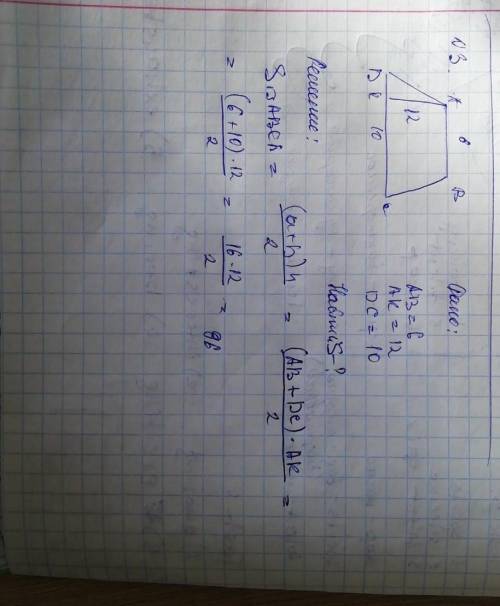 №3.
A 6 B
12
D K 10 C
Дано:
AB = 6
AK = 12
DC = 10
Найти S-?
Решение:
S ABCD = (a+b)h / 2 = (AB + DC) · AK / 2 =
= (6+10) · 12 / 2 = 16 · 12 / 2 = 96